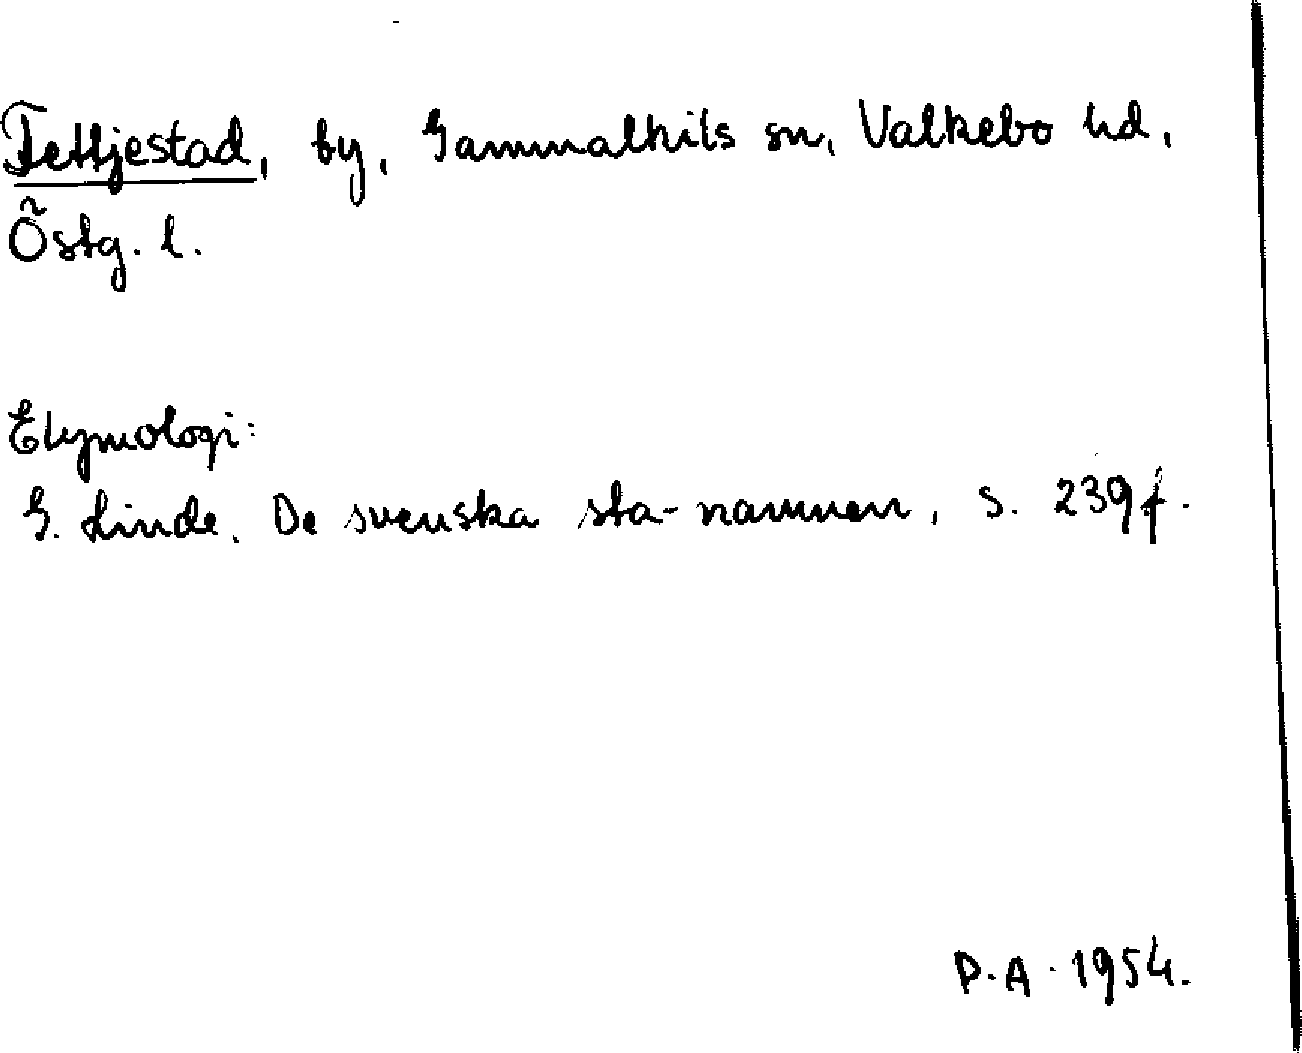 Fettjestad, by, Gammalkils sn, Valkebo hd,
Östg. l.
Etymologi:
G. Linde, De svenska sta-namnen, s. 239 f.
P.A. 1954.